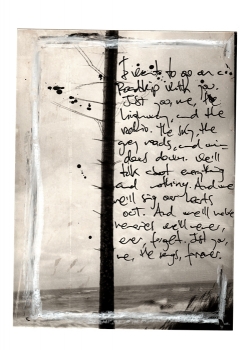 I want to go on a
Roadtrip with you.
Just you, me, the
highway, and the
radio. The sky, the
grey roads, and win-
dows down. We'll
talk about everything
and nothing. And we
we'll sing our hearts
out. And we'll make
memories we'll never,
ever, forget. Just you,
me, the songs, forever.